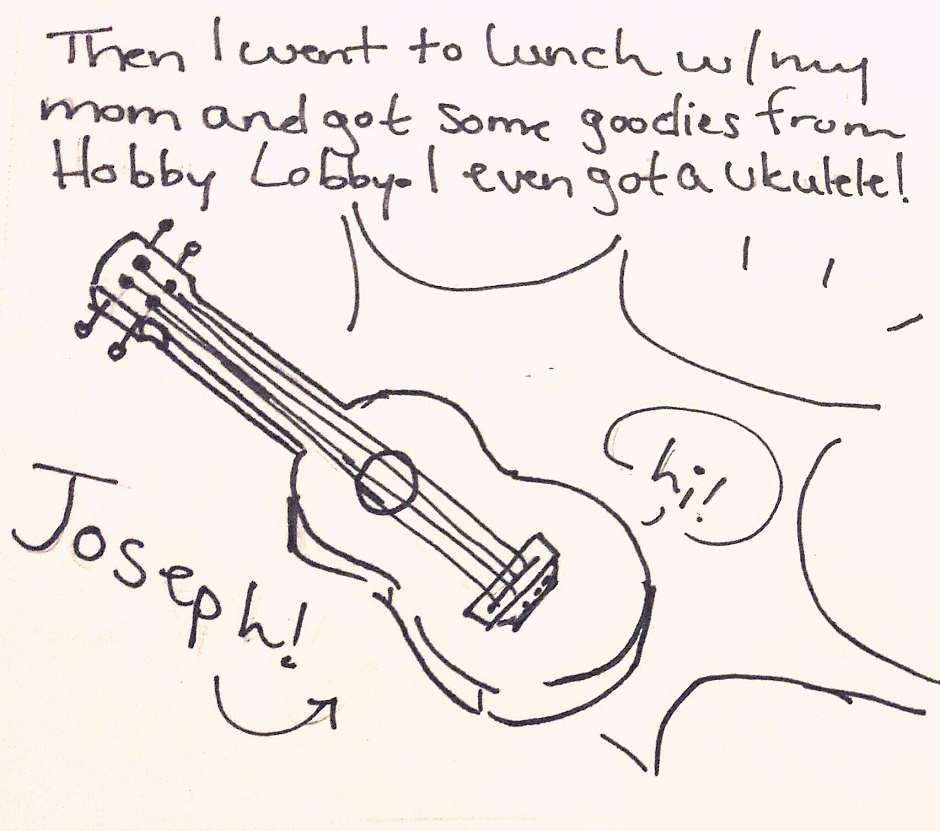 Then I went to lunch w/ my
mom and got some goodies from
Hobby Lobby. I even got a ukulele!
hi!
Joseph!